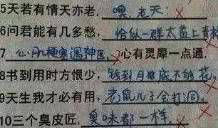 5天若有情天亦老,嘿老天
6问君能有几多愁,恰似一群太监上青楼
7心肌梗塞遇神医,心有灵犀一点通.
8书到用时方恨少,钱到月底不够花
9天生我才必有用,老鼠儿子会打洞
10三个臭皮匠,臭味都一样.